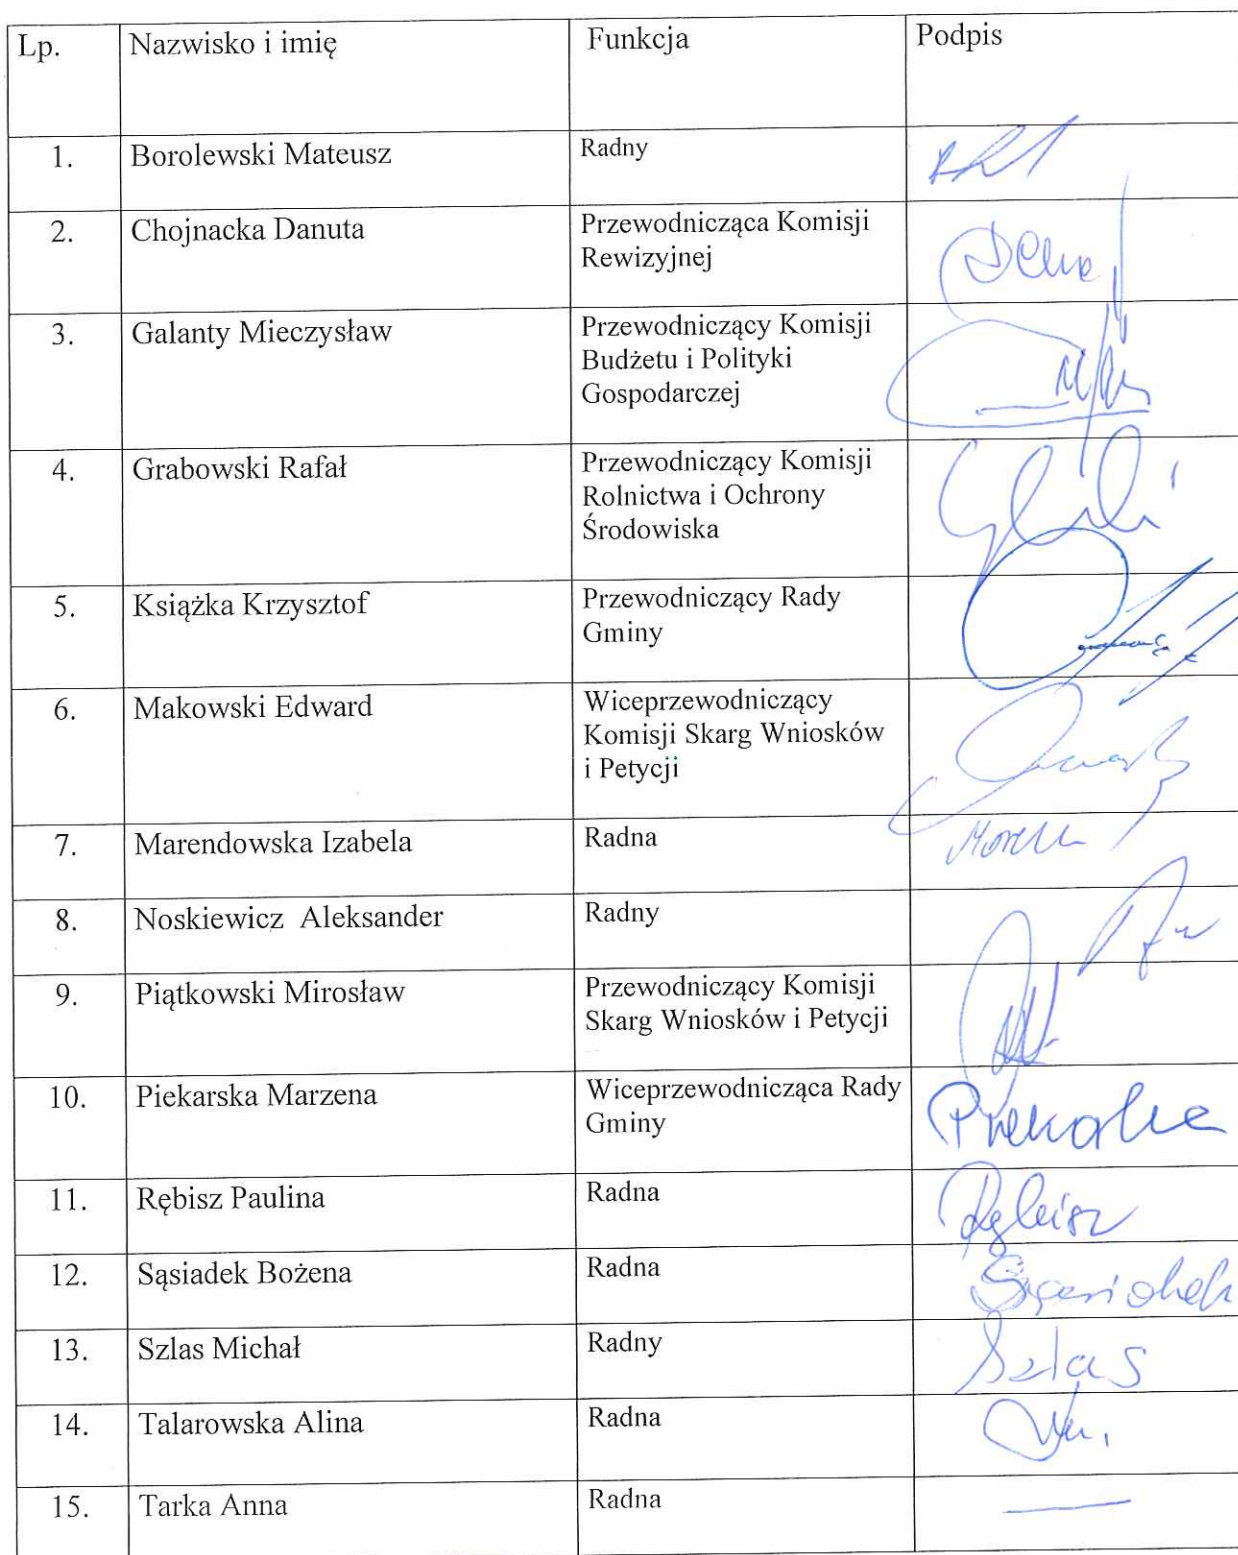 Lp. Nazwisko i imię Funkcja Podpis
1. Borolewski Mateusz Radny
2. Chojnacka Danuta Przewodnicząca Komisji
Rewizyjnej
3. Galanty Mieczysław Przewodniczący Komisji
Budżetu i Polityki
Gospodarczej
4. Grabowski Rafał Przewodniczący Komisji
Rolnictwa i Ochrony
Środowiska
5. Książka Krzysztof Przewodniczący Rady
Gminy
6. Makowski Edward Wiceprzewodniczący
Komisji Skarg Wniosków
i Petycji
7. Marendowska Izabela Radna
8. Noskiewicz Aleksander Radny
9. Piątkowski Mirosław Przewodniczący Komisji
Skarg Wniosków i Petycji
10. Piekarska Marzena Wiceprzewodnicząca Rady
Gminy
11. Rębisz Paulina Radna Rębisz
12. Sąsiadek Bożena Radna Sąsiadek
13. Szlas Michał Radny Szlas
14. Talarowska Alina Radna
15. Tarka Anna Radna —